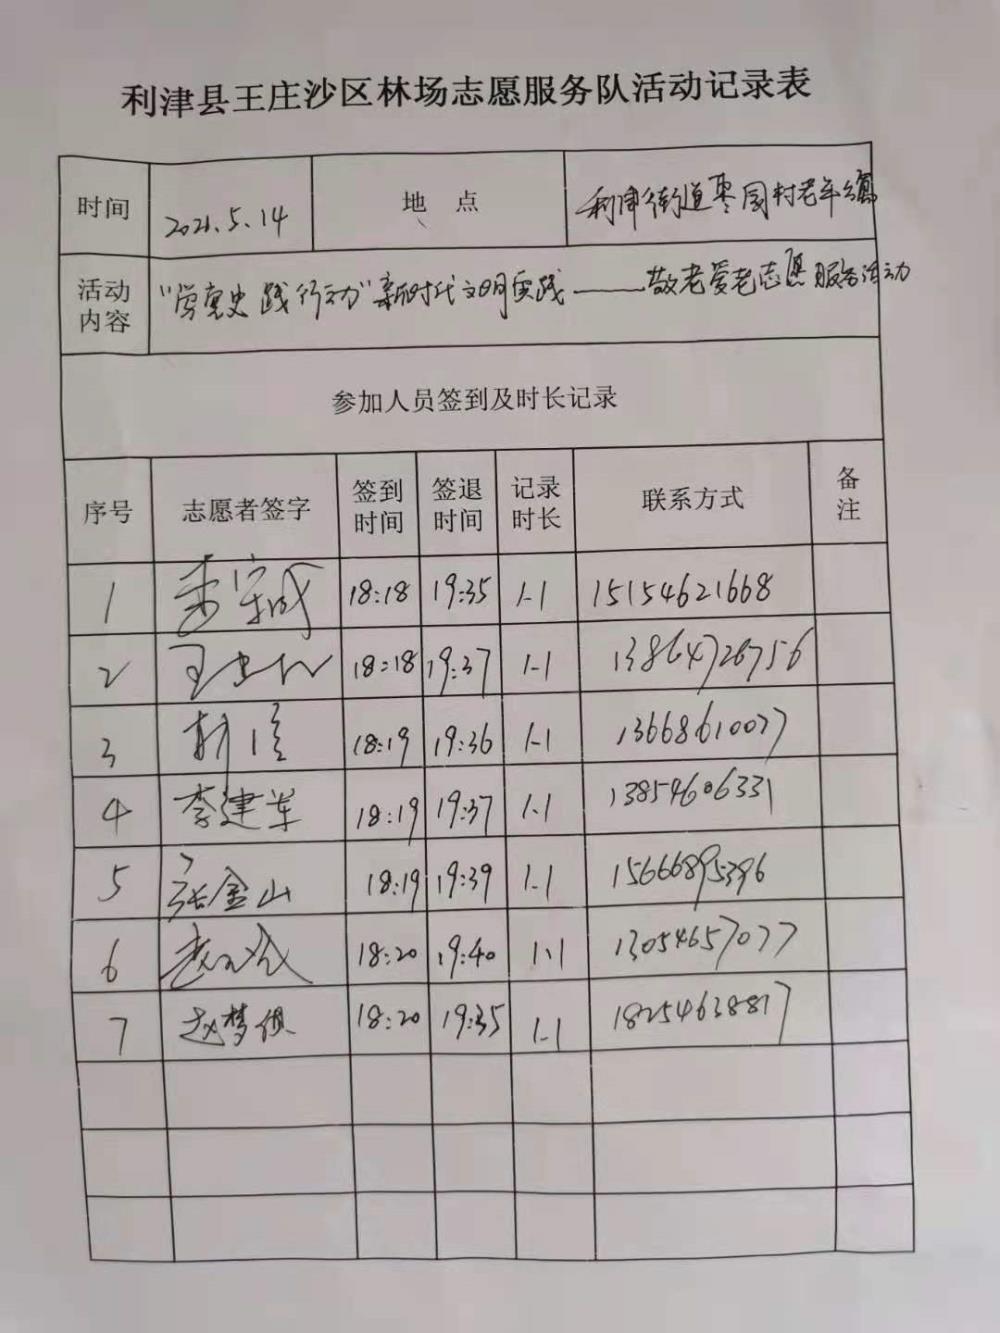 利津县王庄沙区林场志愿服务队活动记录表
时间 2021.5.14 地 点 利津街道枣园村老年公寓
活动内容 “学党史 践行动”新时代文明实践——敬老爱老志愿服务活动
参加人员签到及时长记录
序号 志愿者签字 签到时间 签退时间 记录时长 联系方式 备注
1 18:18 19:35 1.1 15154621668
2 18:18 19:37 1.1 13864726756
3 18:19 19:36 1.1 13668610077
4 李建军 18:19 19:37 1.1 13854606331
5 张金山 18:19 19:39 1.1 15666895396
6 18:20 19:40 1.1 13054657077
7 赵梦俱 18:20 19:35 1.1 18254638817